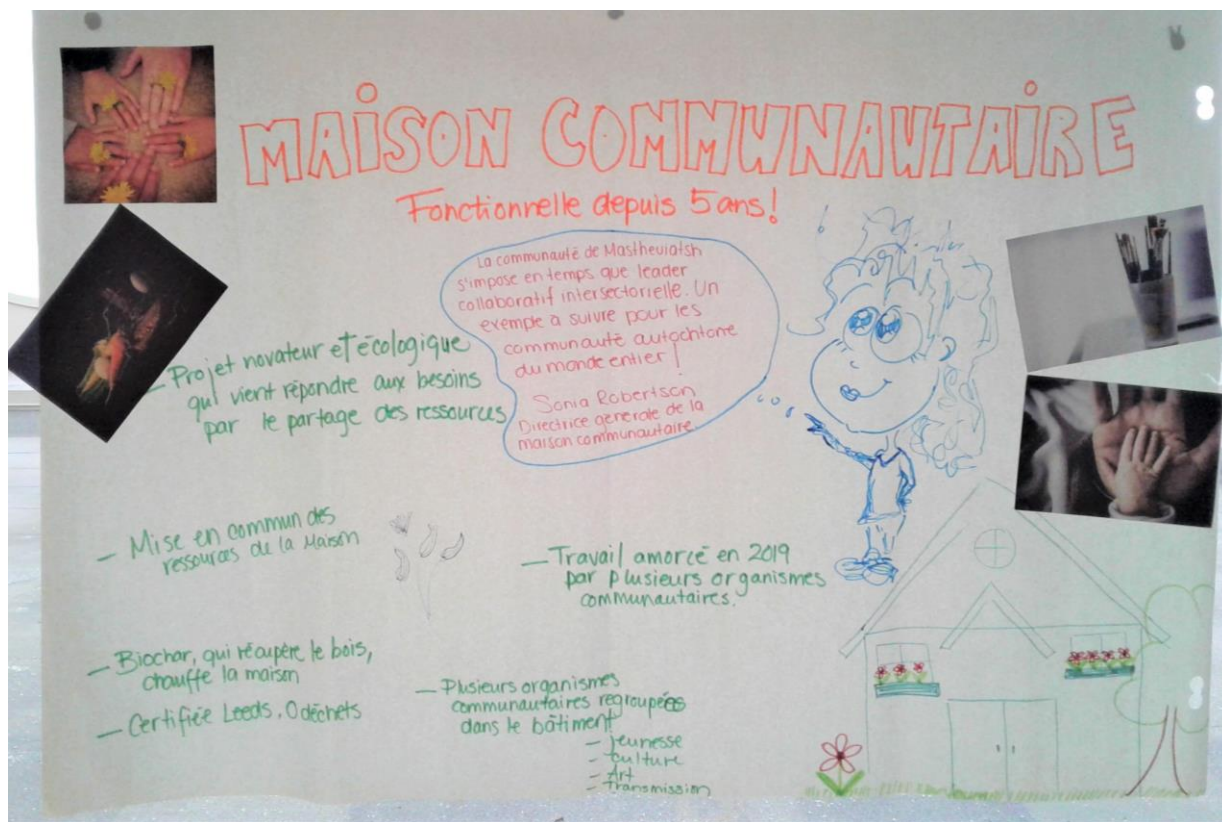 MAISON COMMUNAUTAIRE
Fonctionnelle depuis 5 ans!
La communauté de Mastheuiatsh
s'impose en temps que leader
collaboratif intersectorielle. Un
exemple à suivre pour les
communauté autochtone
du monde entier!
Sonia Robertson
Directrice générale de la
maison communautaire
— Projet novateur et écologique
qui vient répondre aux besoins
par le partage des ressources
— Mise en commun des
ressources de la Maison
— Travail amorcé en 2019
par plusieurs organismes
communautaires.
— Biochar, qui récupère le bois,
chauffe la maison
— Certifiée Leeds. 0 déchets
— Plusieurs organismes
communautaires regroupées
dans le bâtiment
— Jeunesse
— Culture
— Art
— Transmission